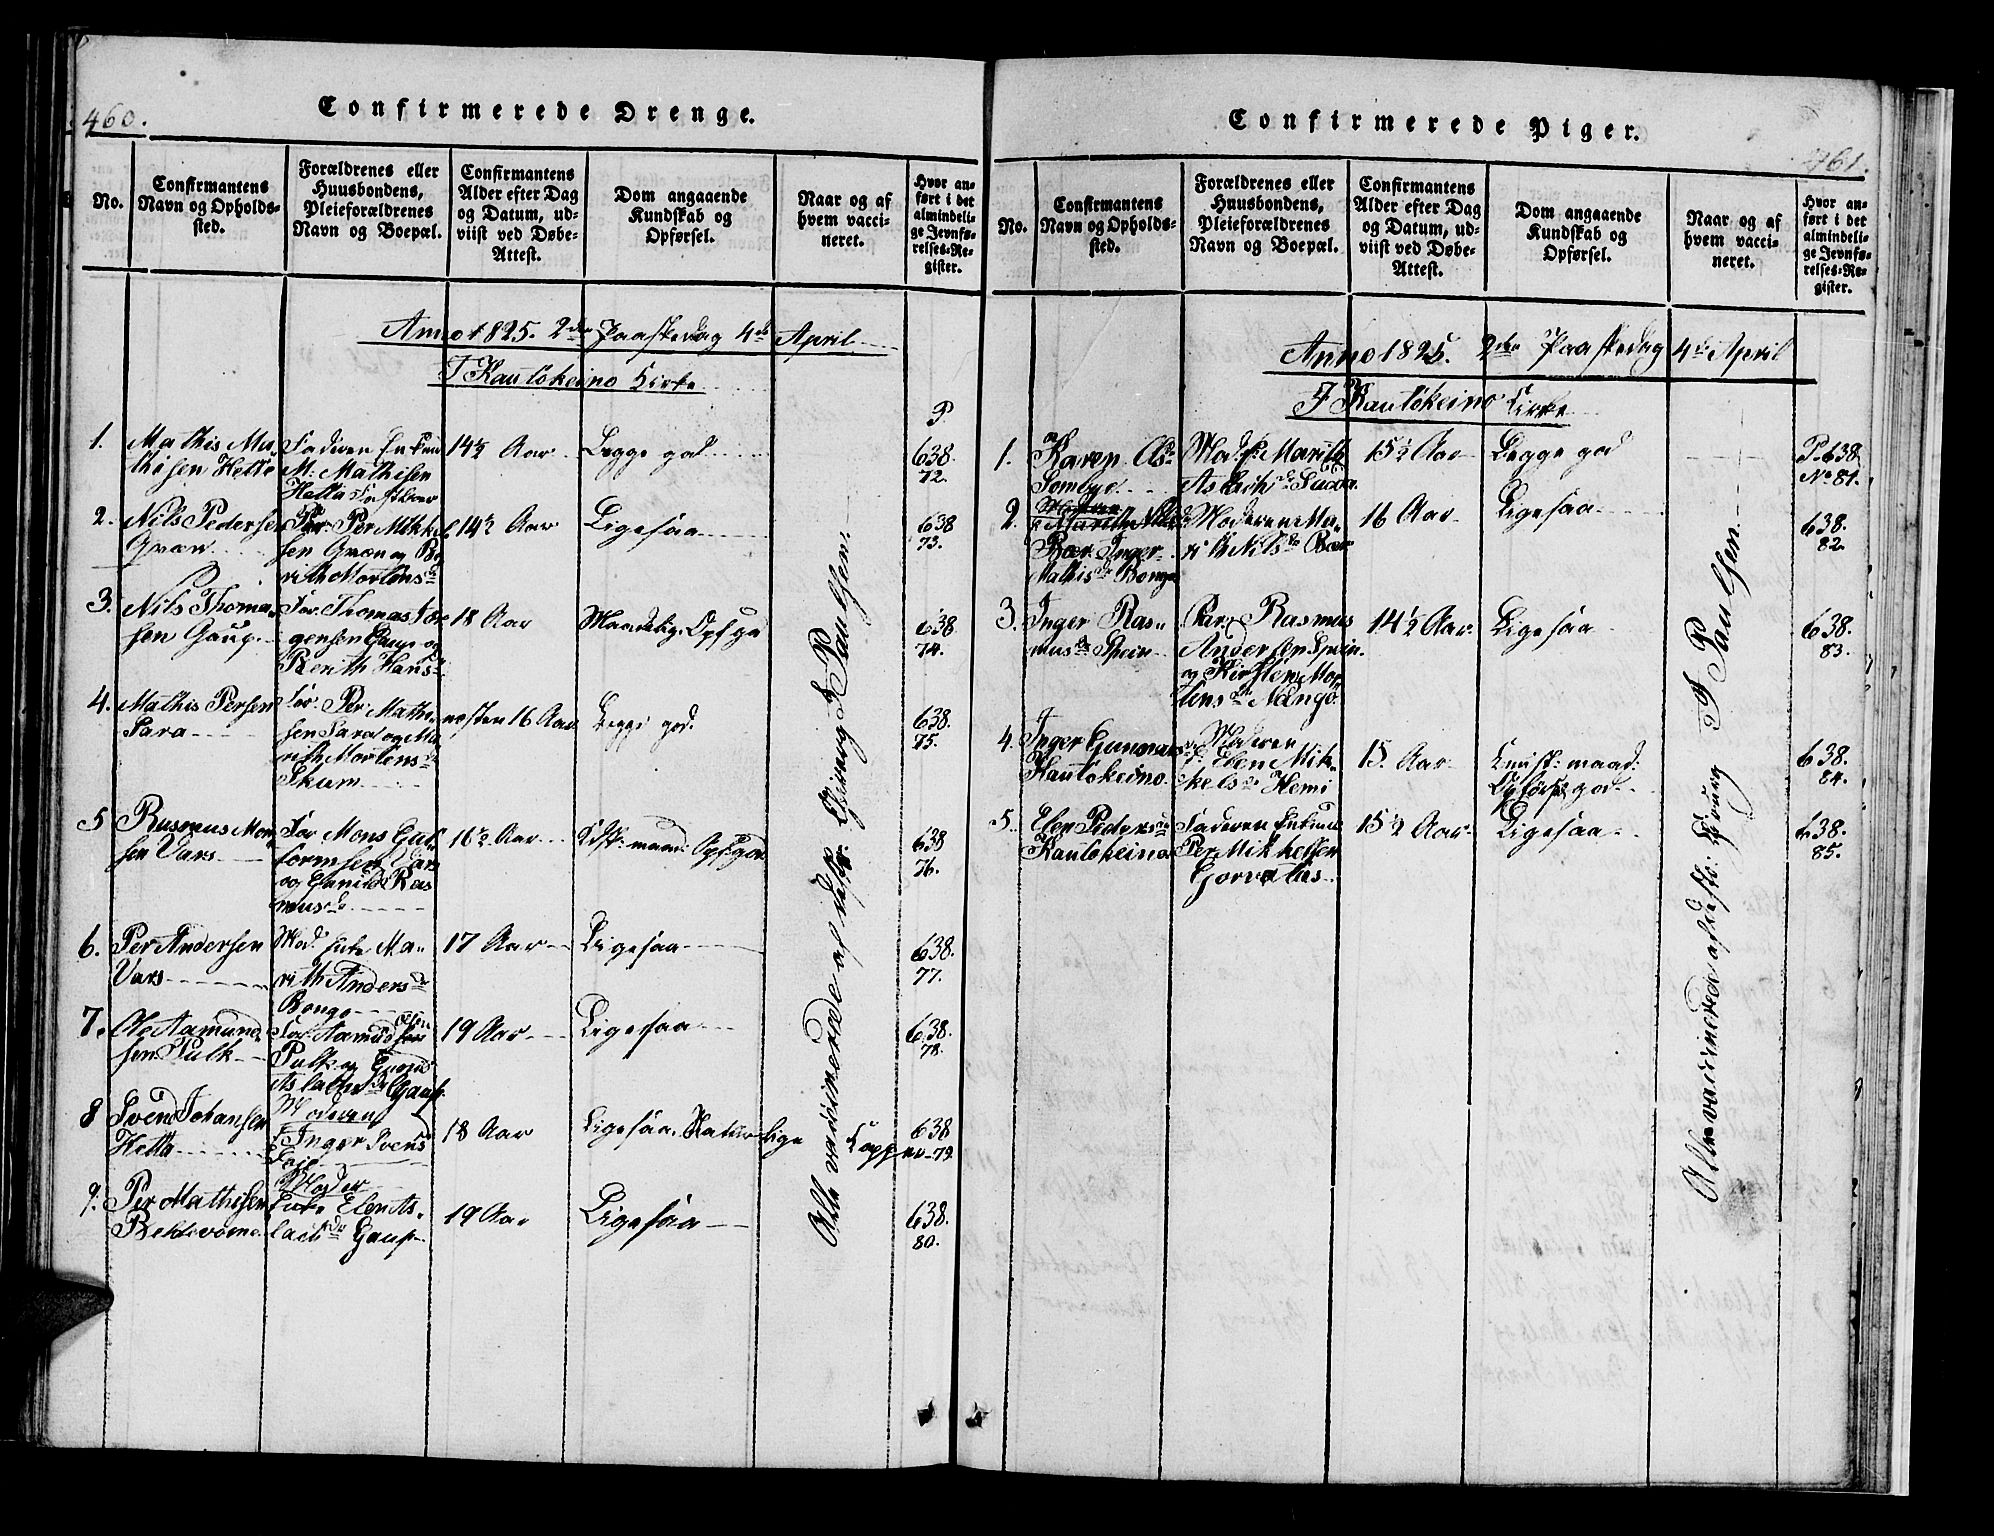 460.
Confirmerede Drenge.
No.
Confirmantens Navn og Opholds-sted.
Forældrenes eller Huusbondens, Pleieforældrenes Navn og Boepæl.
Confirmantens Alder efter Dag og Datum, ud-viist ved Døbe-Attest.
Dom angaaende Kundskab og Opførsel.
Naar og af hvem vacci-neret.
Hvor an-ført i det almindeli-ge Jevnfø-relses-Re-gister.
Anno 1825. 2den Paaskedag 4de April
I Kautokeino Kirke
P.
1. Mathis Ma-
thisen Hetta
Faderen Enkem
M: Mathisen
Hetta
14½ Aar
Begge god
638.
72.
2. Nils Pedersen
Qvæn
For. Per Mikkel
sen Qvæn og Be
rith Mortens
14½ Aar
Ligesaa
638
73.
3. Nils Thoma-
sen Gaup.
For. Thomas
gensen Gaup og
Berith Hans
18 Aar
Maadelig. Opf. go
638
74.
4. Mathis Persen
Sara
For. Per Mathi-
sen Sara og Ma
rith Mortens
Skum
næsten 16 Aar
Begge god.
638.
75.
5 Rasmus Mon
sen Vars
For Mons Gut
tormsen Vars
og Gunild Ras
mus
16½ Aar
maad: Opf. god
638
76.
6. Per Andersen
Vars
Mod. Enke Ma-
rith Anders
Bongo
17 Aar
Ligesaa
638.
77.
7. Ole Aamund
sen Pulk
For. Aamund Olsen
Pulk og
Gaup.
19 Aar
Ligesaa
638.
78.
8 Svend Johansen
Hetta
Moderen
Inger Svens
18 Aar
Ligesaa. Naturlige Kopper
638
79.
9. Per Mathisen
Moder
Enke Elen As-
lachs Gaup
19 Aar
Ligesaa
638.
80.
Alle vaccinerede af
Paulsen
461.
Confirmerede Piger.
No.
Confirmantens Navn og Opholds-sted.
Forældrenes eller Huusbondens, Pleieforældrenes Navn og Boepæl.
Confirmantens Alder efter Dag og Datum, ud-viist ved Døbe-Attest.
Dom angaaende Kundskab og Opførsel.
Naar og af hvem vacci-neret.
Hvor an-ført i det almindeli-ge Jevnfø-relses-Re-gister.
Anno 1825. 2den Paaskedag 4de April
I Kautokeino Kirke
1. Karen
Mod. Marith
Aslachs
15½ Aar
Begge god
P. 638
No 81.
2.
Bær. Inger
Mathis Bongo
Moderen Ma-
rith Nils Bær
16 Aar
Ligesaa
638.
82.
3. Inger Ras-
mus Spein
For. Rasmus
Andersen Spein
og Kirsten Mor
tens Nango
14½ Aar.
Ligesaa
638.
83.
4. Inger Gunnars
Kautokeino
Moderen
Elen Mik
kels Hemi
15. Aar
maad:
Opførsel god
638.
84.
5. Elen Peders
Kautokeino
Faderen Enkem
Per Mikkelsen
Gorvatus
15½ Aar
Ligesaa
638.
85.
Alle vaccinerede af
Paulsen